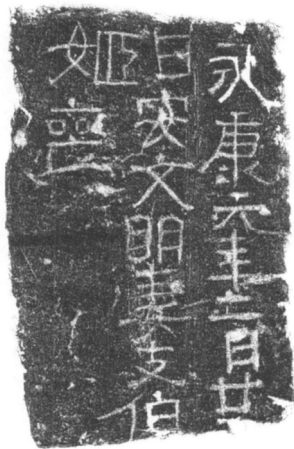 永康元年二月廿一
日安文明妻支伯
姬喪